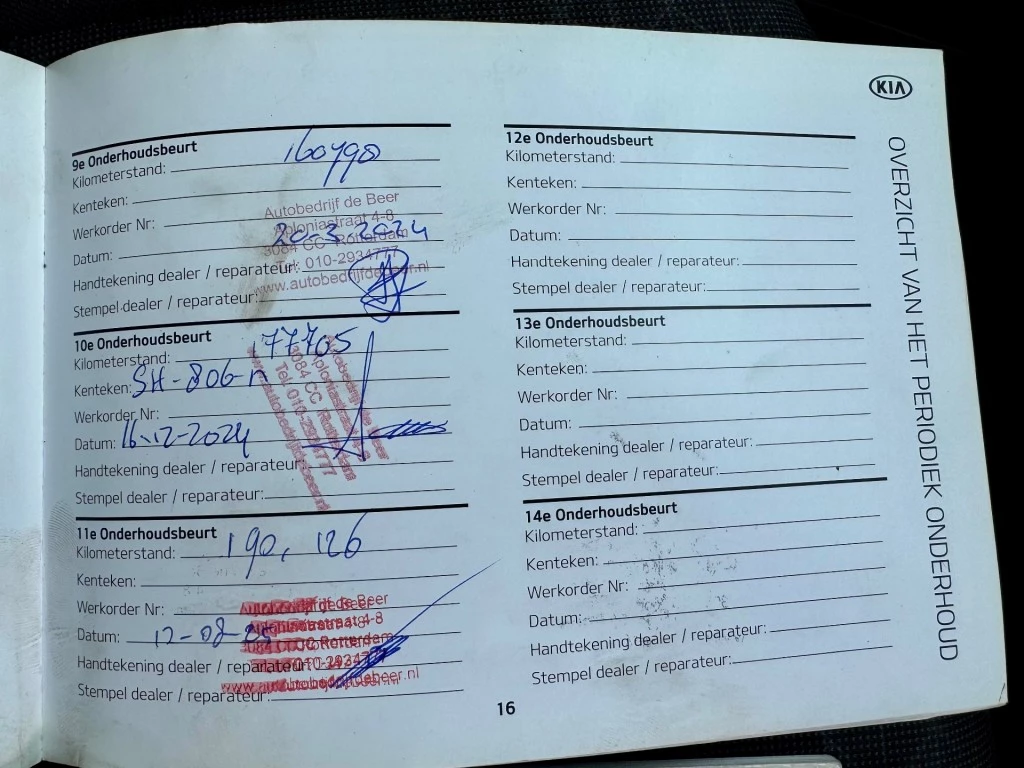 KIA
OVERZICHT VAN HET PERIODIEK ONDERHOUD
9e Onderhoudsbeurt
Kilometerstand: 160790
Kenteken:
Autobedrijf de Beer
Werkorder Nr:
Apoloniastraat 4-8
Datum: 20-3-2024
3084 CC Rotterdam
Handtekening dealer / reparateur:
Tel. 010-2934777
www.autobedrijfdebeer.nl
Stempel dealer / reparateur:
10e Onderhoudsbeurt
Kilometerstand: 177705
Kenteken: SH-806-n
Werkorder Nr:
Datum: 16-12-2024
Handtekening dealer / reparateur:
Stempel dealer / reparateur:
Autobedrijf de Beer
Apoloniastraat 4-8
3084 CC Rotterdam
Tel. 010-2934777
www.autobedrijfdebeer.nl
11e Onderhoudsbeurt
Kilometerstand: 190, 126
Kenteken:
Werkorder Nr:
Autobedrijf de Beer
Datum: 12-08-25
3084 CC Rotterdam
Handtekening dealer / reparateur:
Stempel dealer / reparateur:
12e Onderhoudsbeurt
Kilometerstand:
Kenteken:
Werkorder Nr:
Datum:
Handtekening dealer / reparateur:
Stempel dealer / reparateur:
13e Onderhoudsbeurt
Kilometerstand:
Kenteken:
Werkorder Nr:
Datum:
Handtekening dealer / reparateur:
Stempel dealer / reparateur:
14e Onderhoudsbeurt
Kilometerstand:
Kenteken:
Werkorder Nr:
Datum:
Handtekening dealer / reparateur:
Stempel dealer / reparateur:
16